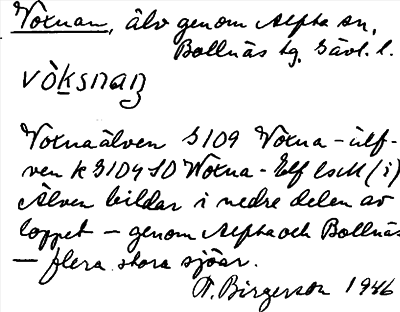 Voxnan, älv genom Alfta sn,
Bollnäs tg, Gävl. l.
vòksnaɲ
Voxnaälven S109 Voxna-ülf-
ven k S104 SO Woxna-Elf
Älven bildar i nedre delen av
loppet – genom Alfta och Bollnäs
– flera stora sjöar.
Birgerson 1946